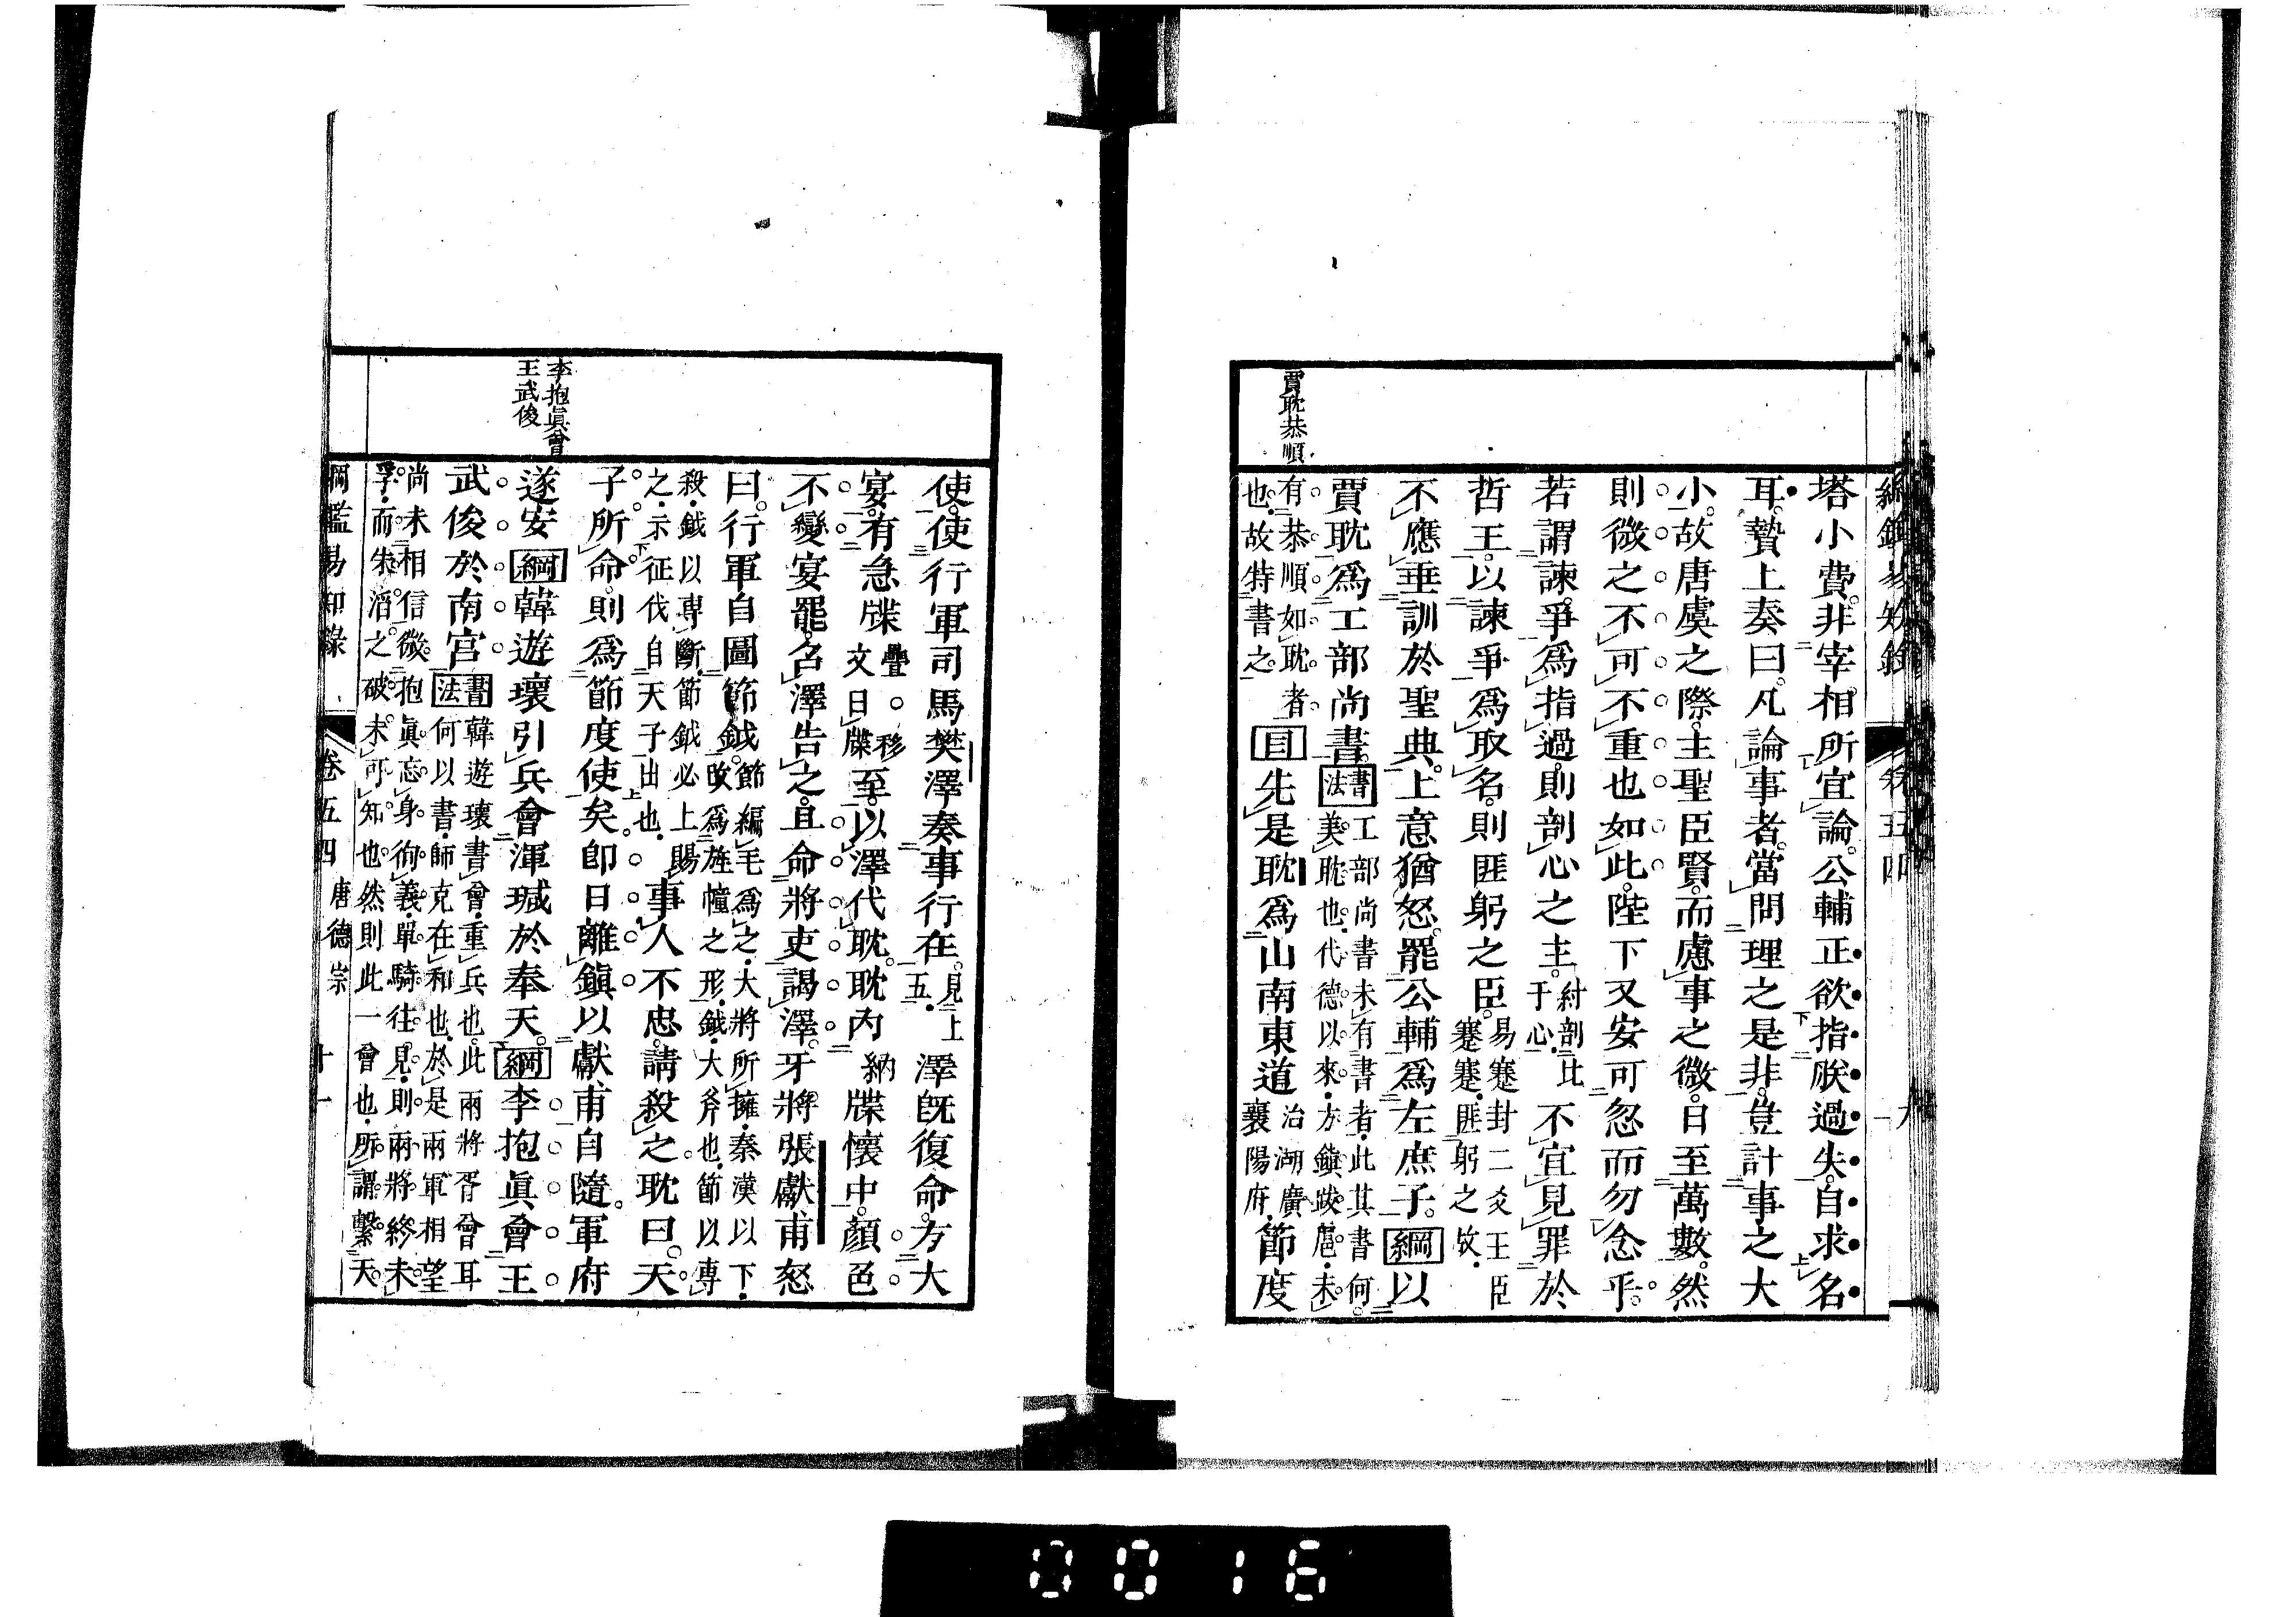 塔小費非宰相所宜論公輔正欲指朕過失自求名
耳贄上奏曰凡論事者當問理之是非豈計事之大
小故唐虞之際主聖臣賢而慮事之微日至萬數然
則微之不可不重也如此陛下又安可忽而勿念乎
若謂諫爭爲指過則剖心之主紂剖比干心不宜見罪於
哲王以諫爭爲取名則匪躬之臣易蹇封二爻王臣蹇蹇匪躬之故
不應垂訓於聖典上意猶怒罷公輔爲左庶子綱以
賈耽爲工部尚書書法工部尚書未有書者此其書何美耽也代德以來方鎮跋扈未
賈耽恭順
有恭順如耽者也故特書之目先是耽爲山南東道治湖廣襄陽府節度
使使行軍司馬樊澤奏事行在見上五澤旣復命方大
宴有急牒疊移文曰牒至以澤代耽耽內納牒懷中顏色
不變宴罷召澤告之且命將吏謁澤牙將張獻甫怒
曰行軍自圖節鉞節編毛爲之大將所擁秦漢以下改爲旌幢之形鉞大斧也節以專
殺鉞以專斷節鉞必上賜之示征伐自天子出也事人不忠請殺之耽曰天
子所命則爲節度使矣卽日離鎮以獻甫自隨軍府
李抱眞會
王武俊
遂安綱韓遊瓌引兵會渾瑊於奉天綱李抱眞會王
武俊於南宮書法韓遊瓌書會重兵也此兩將胥會耳何以書師克在和也於是兩軍相望
尚未相信微抱眞忘身徇義單騎往見則兩將終未孚而朱滔之破未可知也然則此一會也所謂繫天
綱鑑易知錄 卷五四 唐德宗 十一